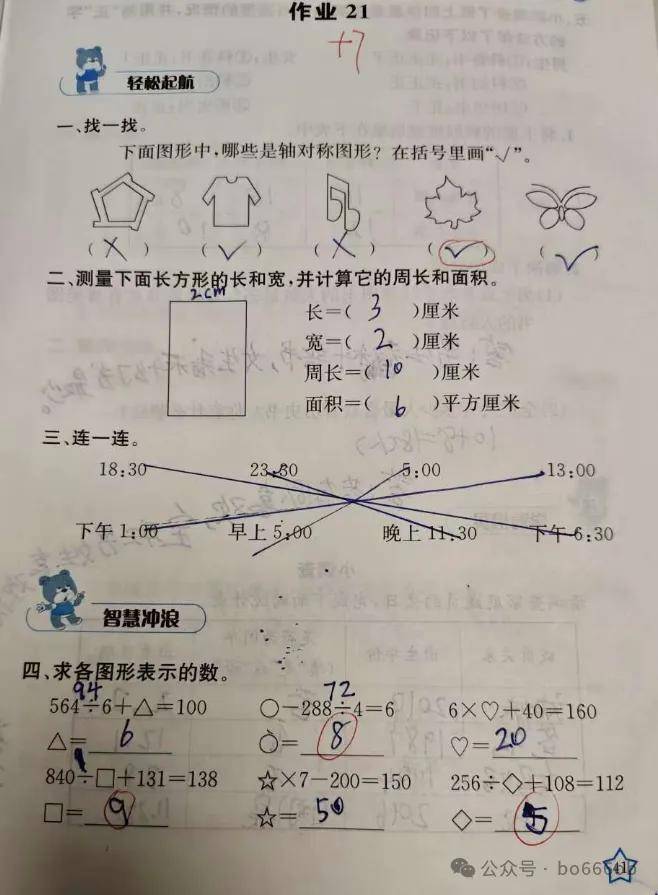 作业 21
+7
轻松起航
一、找一找。
下面图形中,哪些是轴对称图形?在括号里画“√”。
(×) (√) (×) (√) (√)
二、测量下面长方形的长和宽,并计算它的周长和面积。
2cm
长=( 3 )厘米
宽=( 2 )厘米
周长=( 10 )厘米
面积=( 6 )平方厘米
三、连一连。
18:30 23:30 5:00 13:00
下午 1:00 早上 5:00 晚上 11:30 下午 6:30
智慧冲浪
四、求各图形表示的数。
94 72
564÷6+△=100 ○-288÷4=6 6×♡+40=160
△= 6 ○= 8 ♡= 20
840÷□+131=138 ☆×7-200=150 256÷◇+108=112
□= 9 ☆= 50 ◇= 5
公众号 · bo66666
41